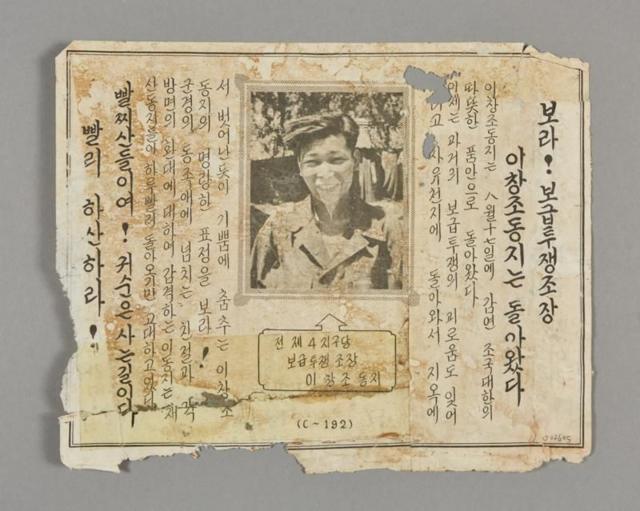 보라! 보급투쟁조장
이창조동지는 돌아왔다
이창조동지는 八월十七일에 감연 조국대한의
따뜻한 품안으로 돌아왔다
이제는 과거의 보급투쟁의 괴로움도 잊어
고 자유천지에 돌아와서 지옥에
서 벗어난듯이 기쁨에 춤추는 이창조
동지의 명랑한 표정을 보라!
군경의 동포애에 넘치는 친절과 각
방면의 환대에 대하여 감격하는 이동지는 재
산동지들이 하루빨리 돌아오기만 고대하고있다
빨찌산들이여! 귀순은 사는길이다
빨리 하산하라!
전 제4지구당
보급투쟁조장
이창조 동지
(C-192)